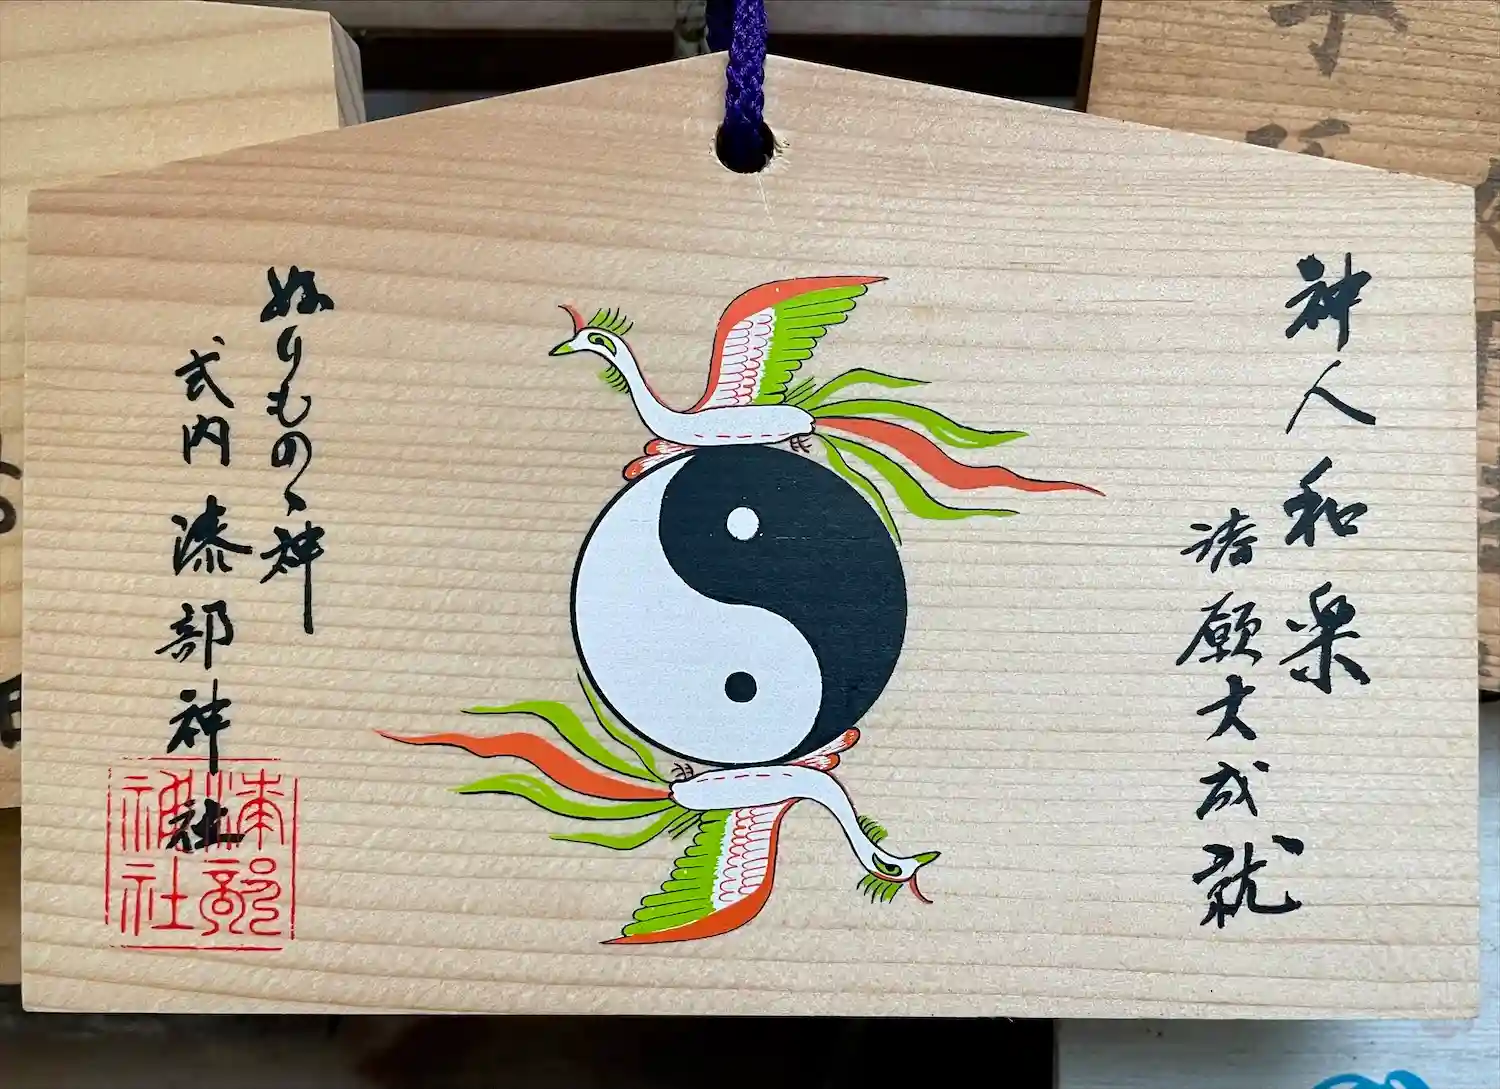 神人和楽
諸願大成就
ぬりものゝ神
式内漆部神社
漆部
神社